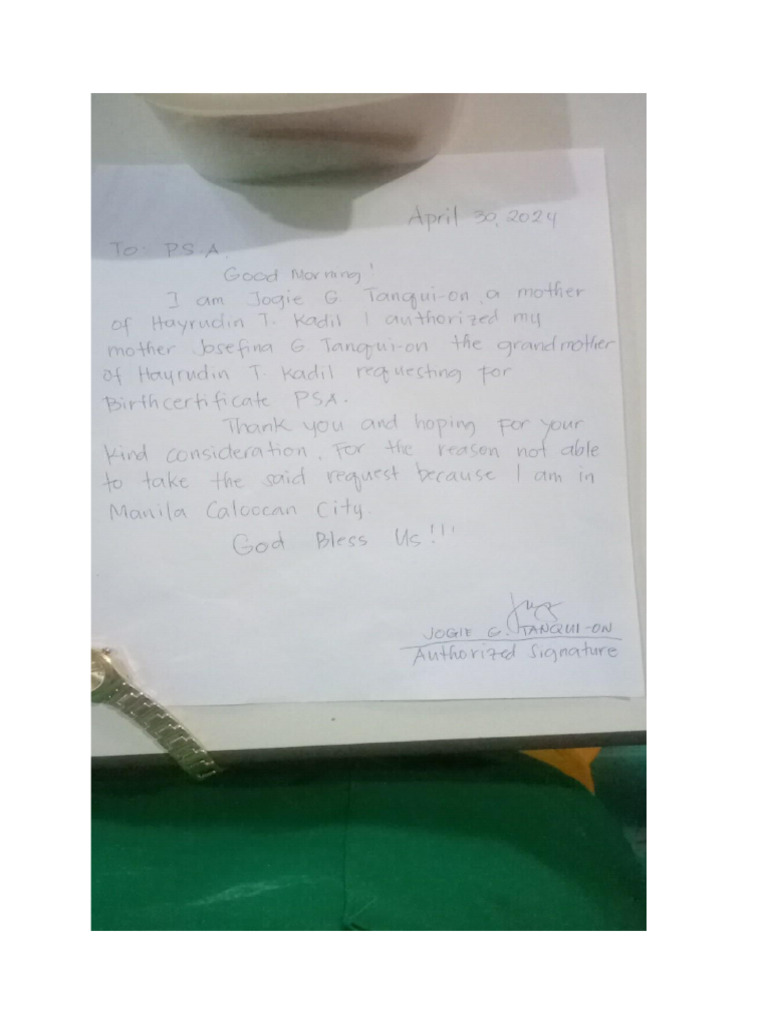 April 30, 2024
To: P.S.A.
Good Morning!
I am Jogie G. Tanqui-on, a mother
of Hayrudin T. Kadil I authorized my
mother Josefina G. Tanqui-on the grandmother
of Hayrudin T. Kadil requesting for
Birthcertificate PSA.
Thank you and hoping for your
kind consideration. For the reason not able
to take the said request because I am in
Manila Caloocan City.
God Bless Us!!!
JOGIE G. TANQUI-ON
Authorized Signature